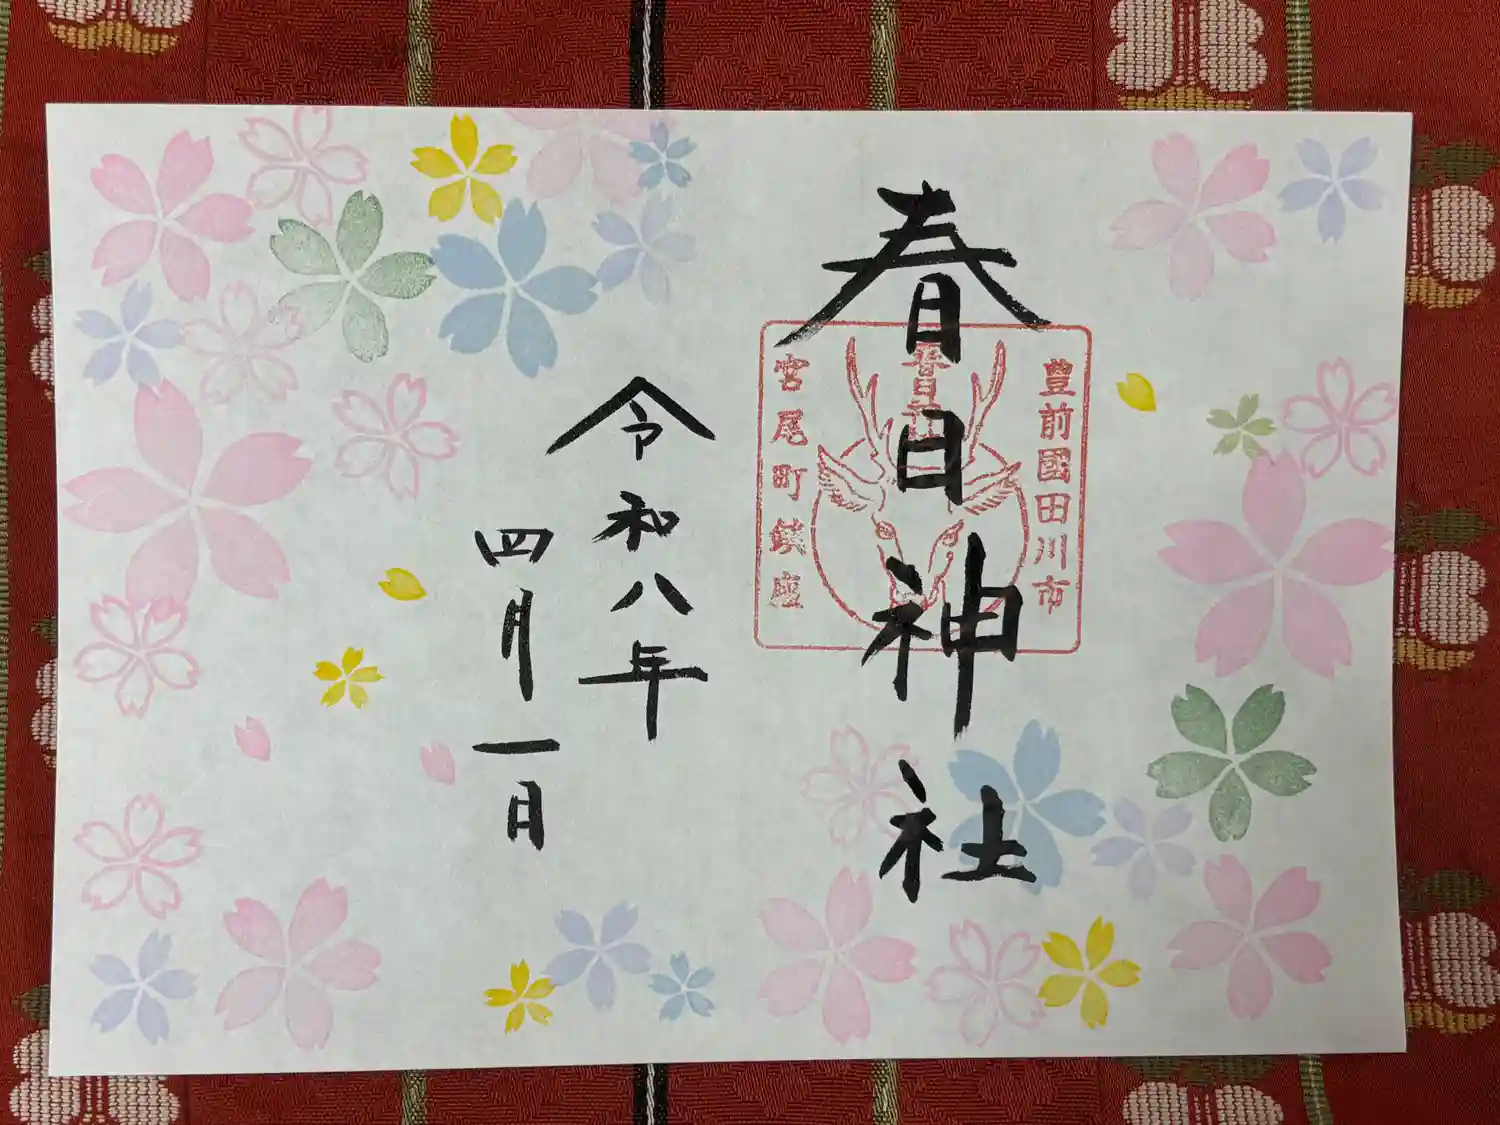 春日神社
豊前國田川市
春日神社
宮尾町鎮座
令和八年
四月一日